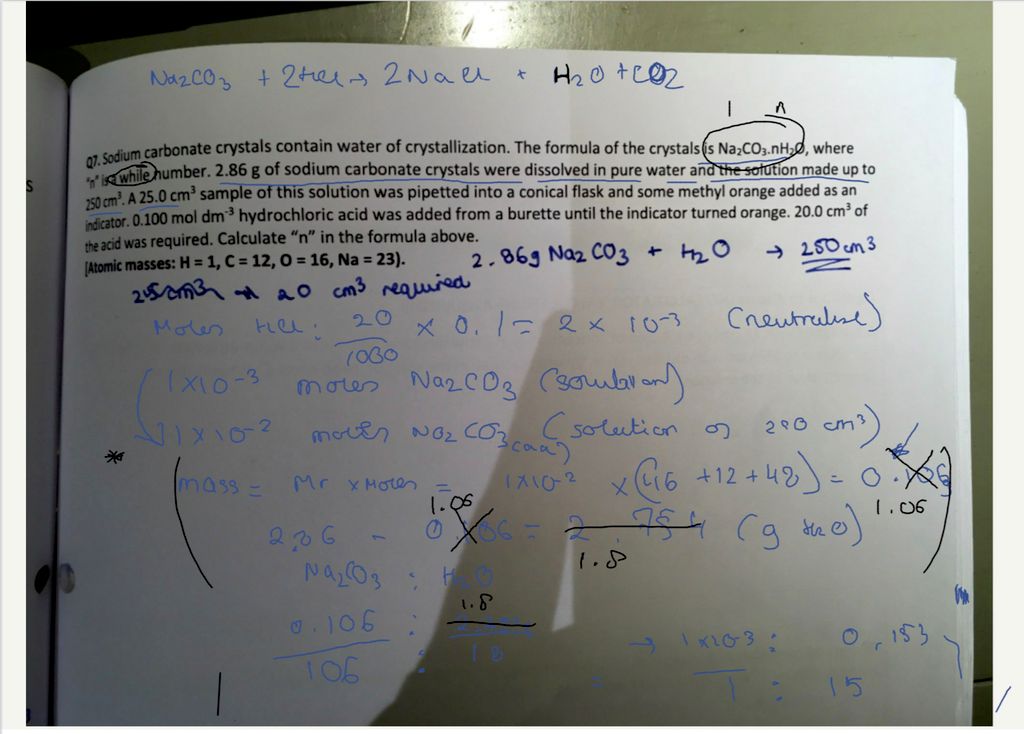 Na2CO3 + 2HCl → 2NaCl + H2O + CO2
1 n
Q7. Sodium carbonate crystals contain water of crystallization. The formula of the crystals is Na₂CO₃.nH₂O, where
"n" is a while humber. 2.86 g of sodium carbonate crystals were dissolved in pure water and the solution made up to
250 cm³. A 25.0 cm³ sample of this solution was pipetted into a conical flask and some methyl orange added as an
indicator. 0.100 mol dm⁻³ hydrochloric acid was added from a burette until the indicator turned orange. 20.0 cm³ of
the acid was required. Calculate "n" in the formula above.
[Atomic masses: H = 1, C = 12, O = 16, Na = 23).
2.86g Na2CO3 + H2O → 250 cm3
25cm3 → 20 cm3 required
Moles HCl : 20/1000 × 0.1 = 2 × 10-3 (neutralise)
1×10-3 moles Na2CO3 (solution)
1×10-2 moles Na2CO3 (aq) (solution of 250 cm3)
* mass = Mr × Moles = 1×10-2 × (46 + 12 + 48) = 0.106
1.06 1.06
2.86 - 0.106 = 2.754 (g H2O)
1.8
Na2CO3 : H2O
1.8
0.106 :
106 : 18
→ 1×10-3 : 0.153
= 1 : 15